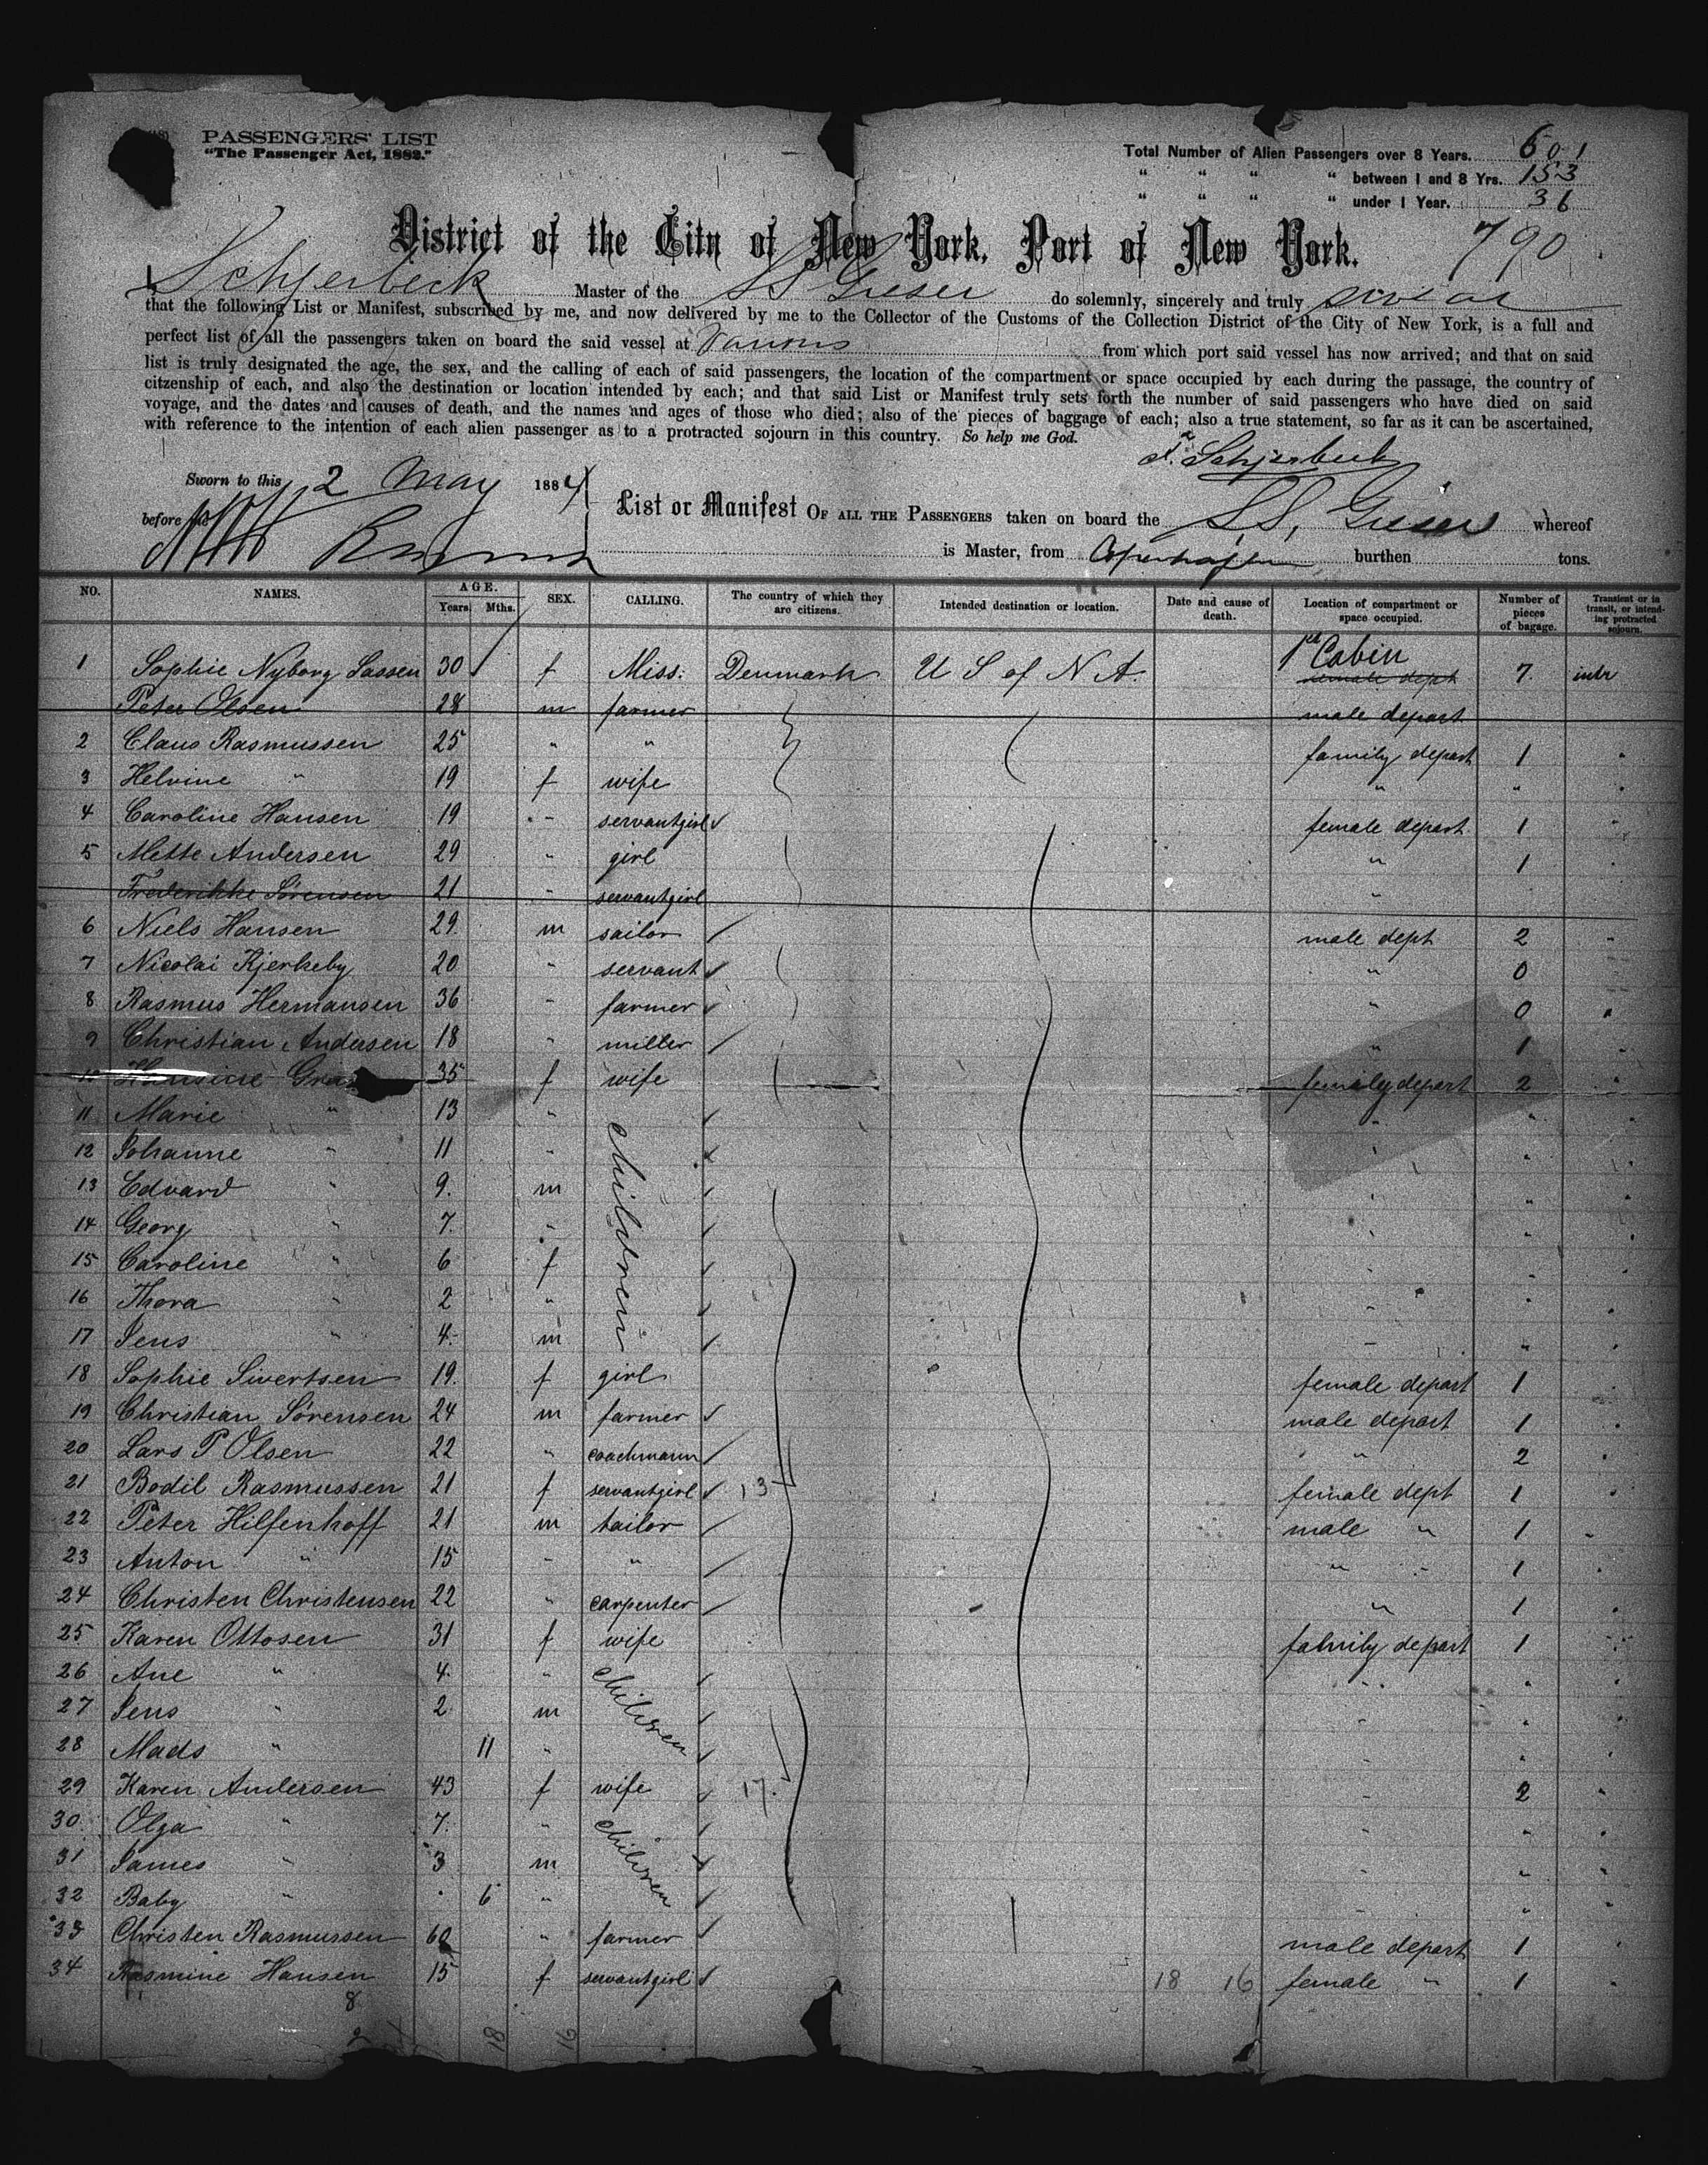 PASSENGERS' LIST
"The Passenger Act, 1882."
Total Number of Alien Passengers over 8 Years. 601
" " " " between 1 and 8 Yrs. 153
" " " " under 1 Year. 36
790
District of the City of New York, Port of New York.
I, Schjerbeck Master of the SS Geiser do solemnly, sincerely and truly swear
that the following List or Manifest, subscribed by me, and now delivered by me to the Collector of the Customs of the Collection District of the City of New York, is a full and
perfect list of all the passengers taken on board the said vessel at Various from which port said vessel has now arrived; and that on said
list is truly designated the age, the sex, and the calling of each of said passengers, the location of the compartment or space occupied by each during the passage, the country of
citzenship of each, and also the destination or location intended by each; and that said List or Manifest truly sets forth the number of said passengers who have died on said
voyage, and the dates and causes of death, and the names and ages of those who died; also of the pieces of baggage of each; also a true statement, so far as it can be ascertained,
with reference to the intention of each alien passenger as to a protracted sojourn in this country. So help me God.
Schjerbeck
Sworn to this 2 May 1884
before me
List or Manifest OF ALL THE PASSENGERS taken on board the S.S. Geiser whereof
is Master, from Copenhagen burthen tons.
NO. NAMES. AGE. Years Mths. SEX. CALLING. The country of which they are citizens. Intended destination or location. Date and cause of death. Location of compartment or space occupied. Number of pieces of bagage. Transient or in transit, or intending protracted sojourn.
1st Cabin
1 Sophie Nyborg Sassen 30 f Miss. Denmark U S of N A. female dept 7. intr
Peter Olsen 28 m farmer male depart
2 Claus Rasmussen 25 " " family depart 1 "
3 Helvine " 19 f wife " " "
4 Caroline Hansen 19 " servantgirl female depart 1 "
5 Mette Andersen 29 " girl " 1 "
Frederikke Sörensen 21 " servantgirl "
6 Niels Hansen 29. m sailor male dept 2 "
7 Nicolai Kjerkeby 20 " servant " 0
8 Rasmus Hermansen 36 " farmer " 0 "
9 Christian Andersen 18 " miller " 1 "
10 Hansine 35 f wife family depart 2 "
11 Marie " 13 " children " " "
12 Johanne " 11 " " " "
13 Edvard " 9. m " " "
14 Georg " 7. " " " "
15 Caroline " 6 f " " "
16 Thora " 2 " " " "
17 Jens " 4. m " " "
18 Sophie Sivertsen 19. f girl female depart 1 "
19 Christian Sörensen 24 m farmer male depart 1 "
20 Lars P Olsen 22 " coachmann " 2 "
21 Bodil Rasmussen 21 f servantgirl 13 female dept 1 "
22 Peter Hilfenhoff 21 m tailor male " 1 "
23 Anton " 15 " " " " 1 "
24 Christen Christensen 22 " carpenter " 1 "
25 Karen Ottosen 31 f wife family depart 1 "
26 Ane " 4. " children " " "
27 Jens " 2 m " " "
28 Mads " 11 " " " "
29 Karen Andersen 43 f wife 17. " 2 "
30 Olga " 7. " children " " "
31 James " 3 m " " "
32 Baby " 6 " " " "
33 Christen Rasmussen 60 " farmer male depart 1 "
34 Rasmine Hansen 15 f servantgirl 18 16 female " 1 "
8
2 18 16